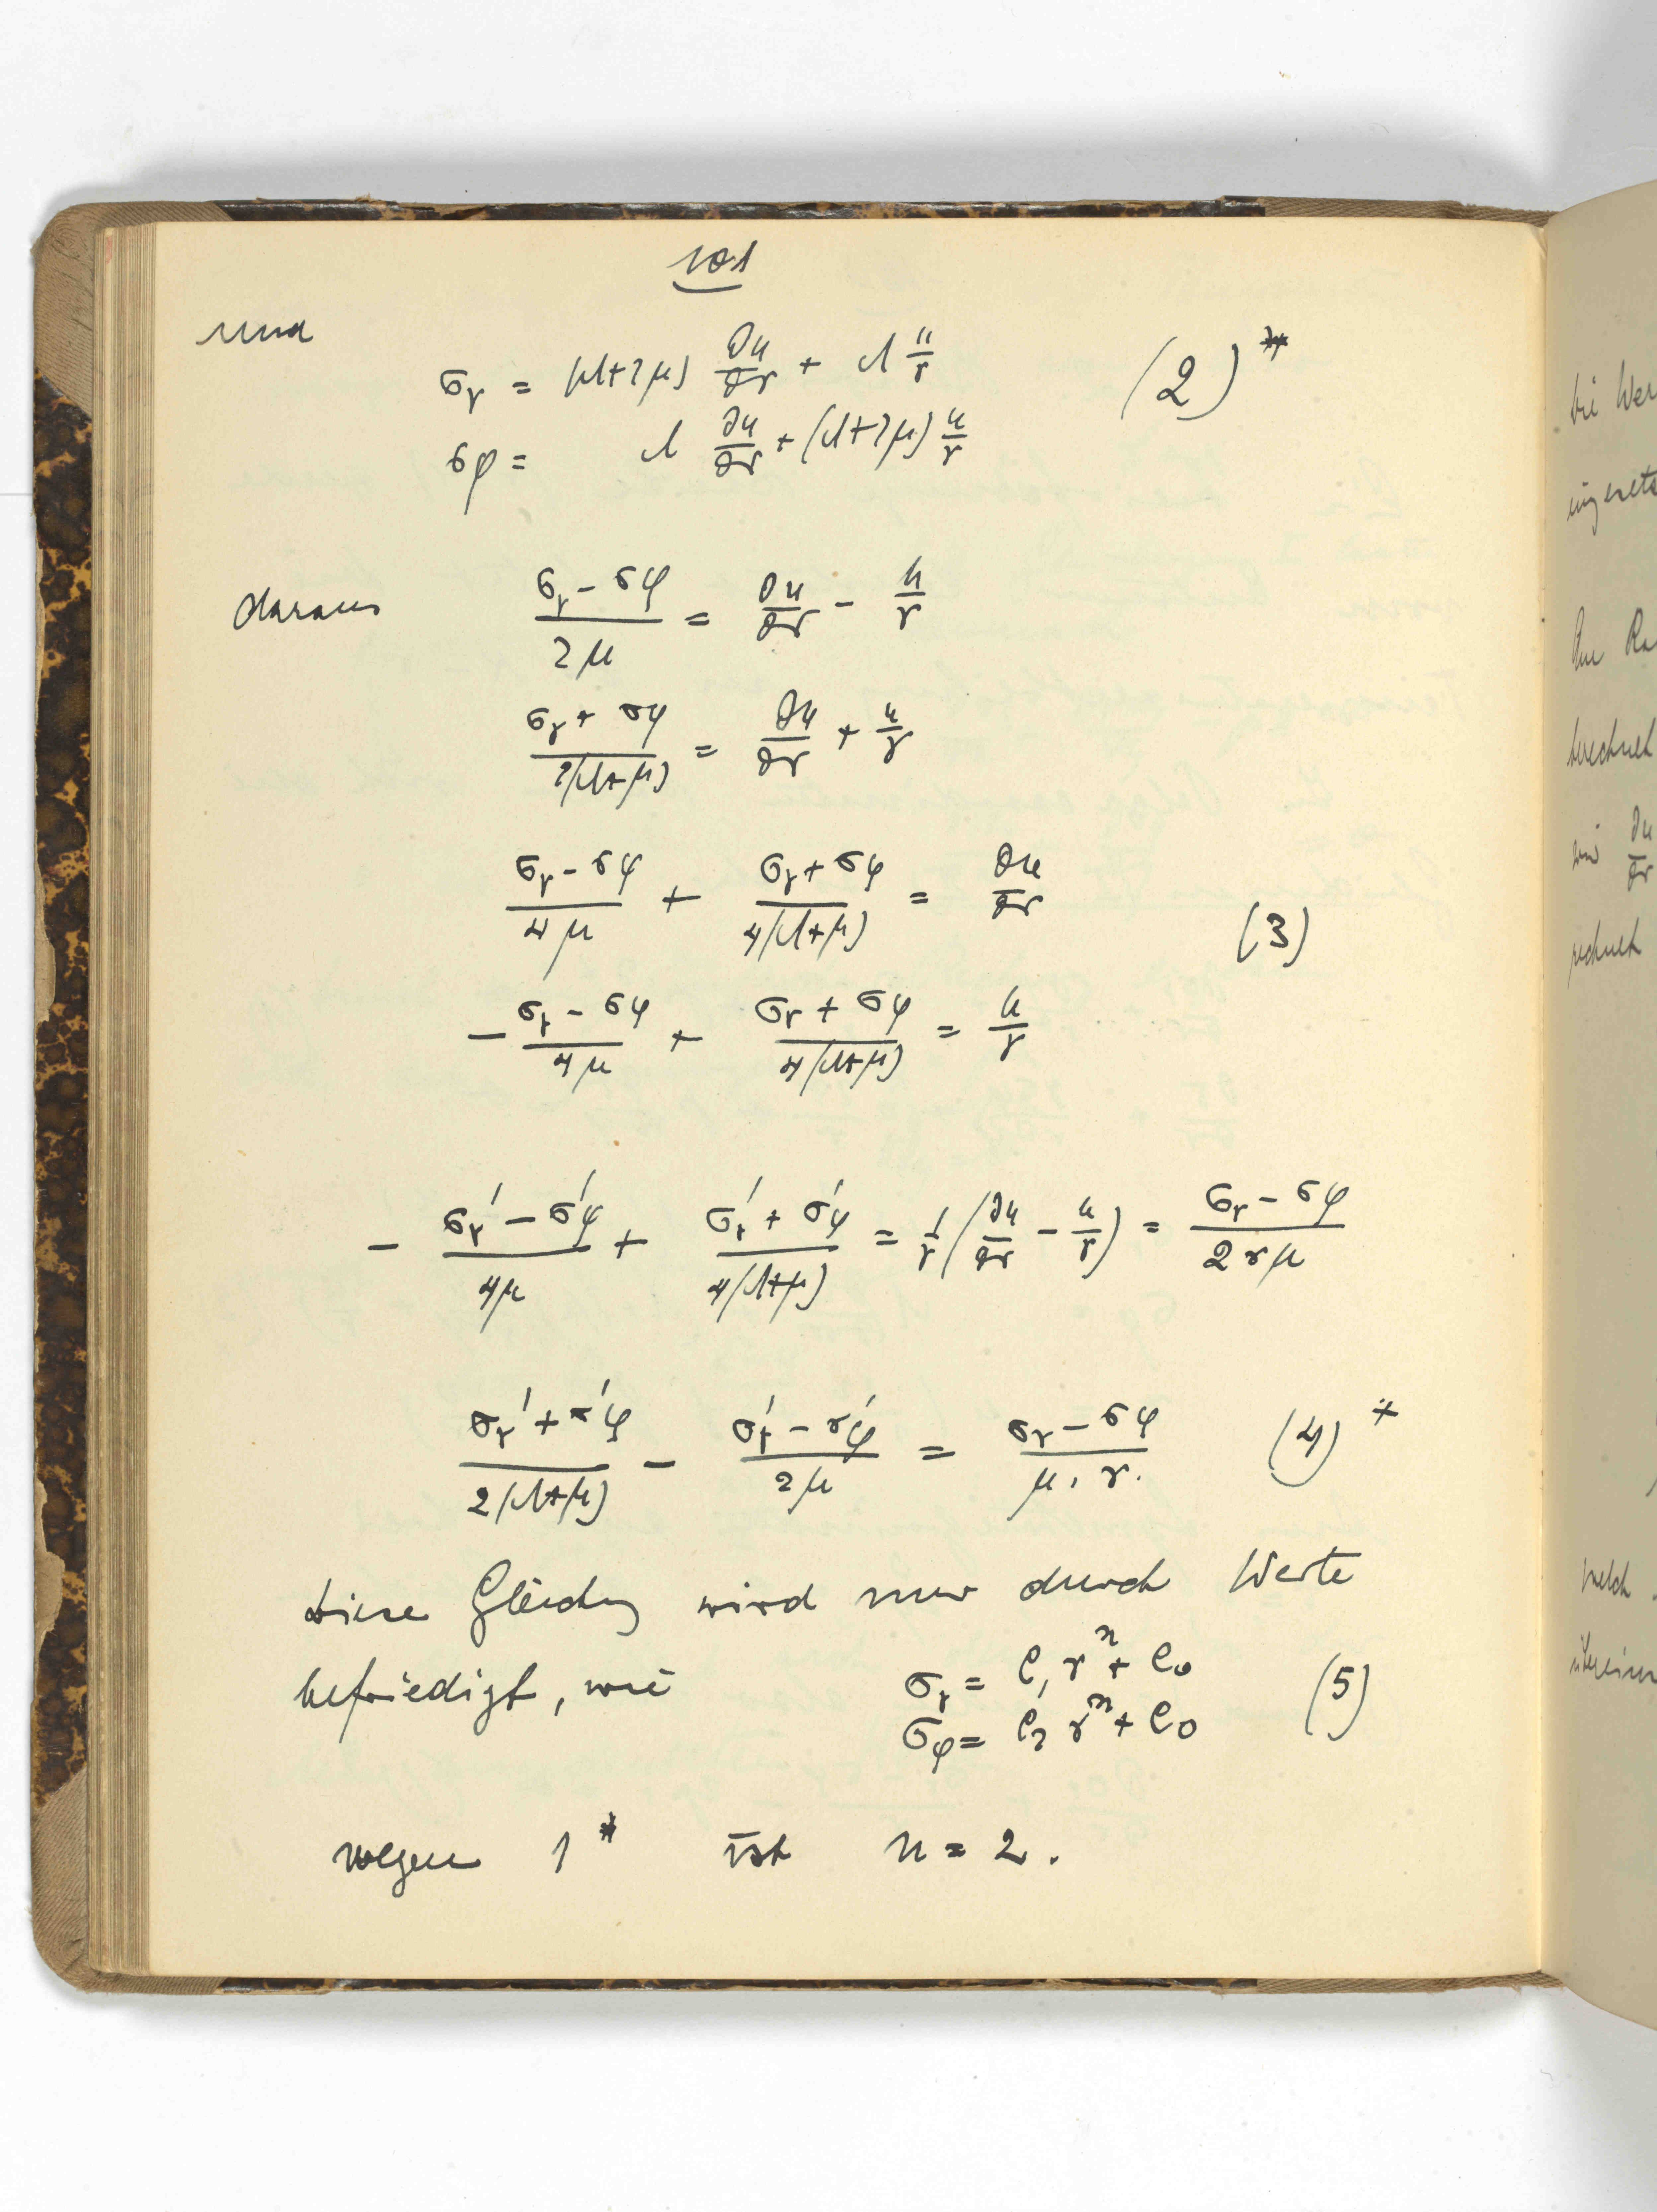 101
und
σr = (λ+2μ) ∂u/∂r + λ u/r (2)*
σφ = λ ∂u/∂r + (λ+2μ) u/r
daraus (σr − σφ)/2μ = ∂u/∂r − u/r
(σr + σφ)/2(λ+μ) = ∂u/∂r + u/r
(σr − σφ)/4μ + (σr + σφ)/4(λ+μ) = ∂u/∂r
(3)
− (σr − σφ)/4μ + (σr + σφ)/4(λ+μ) = u/r
− (σr' − σ'φ)/4μ + (σr' + σ'φ)/4(λ+μ) = 1/r (∂u/∂r − u/r) = (σr − σφ)/2rμ
(σr' + σ'φ)/2(λ+μ) − (σ'r − σ'φ)/2μ = (σr − σφ)/μ.r. (4)*
diese Gleichg wird nur durch Werte
befriedigt, wie σr = C₁ rⁿ + C₀ (5)
σφ = C₂ rⁿ + C₀
wegen 1* ist n = 2.
die Wer
eingesetz
berechnet
wir ∂u/∂r
rechnet
welch